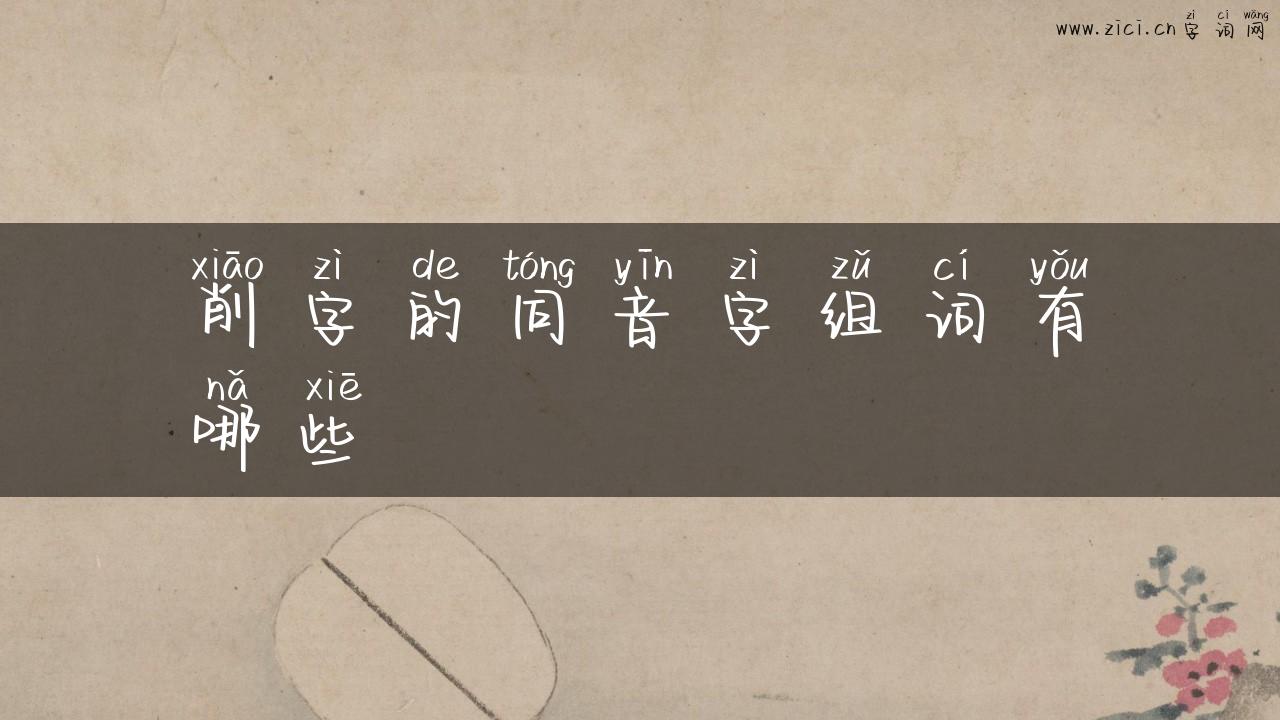 zì cí wǎng
www.zici.cn 字词网
xiāo zì de tóng yīn zì zǔ cí yǒu
削字的同音字组词有
nǎ xiē
哪些